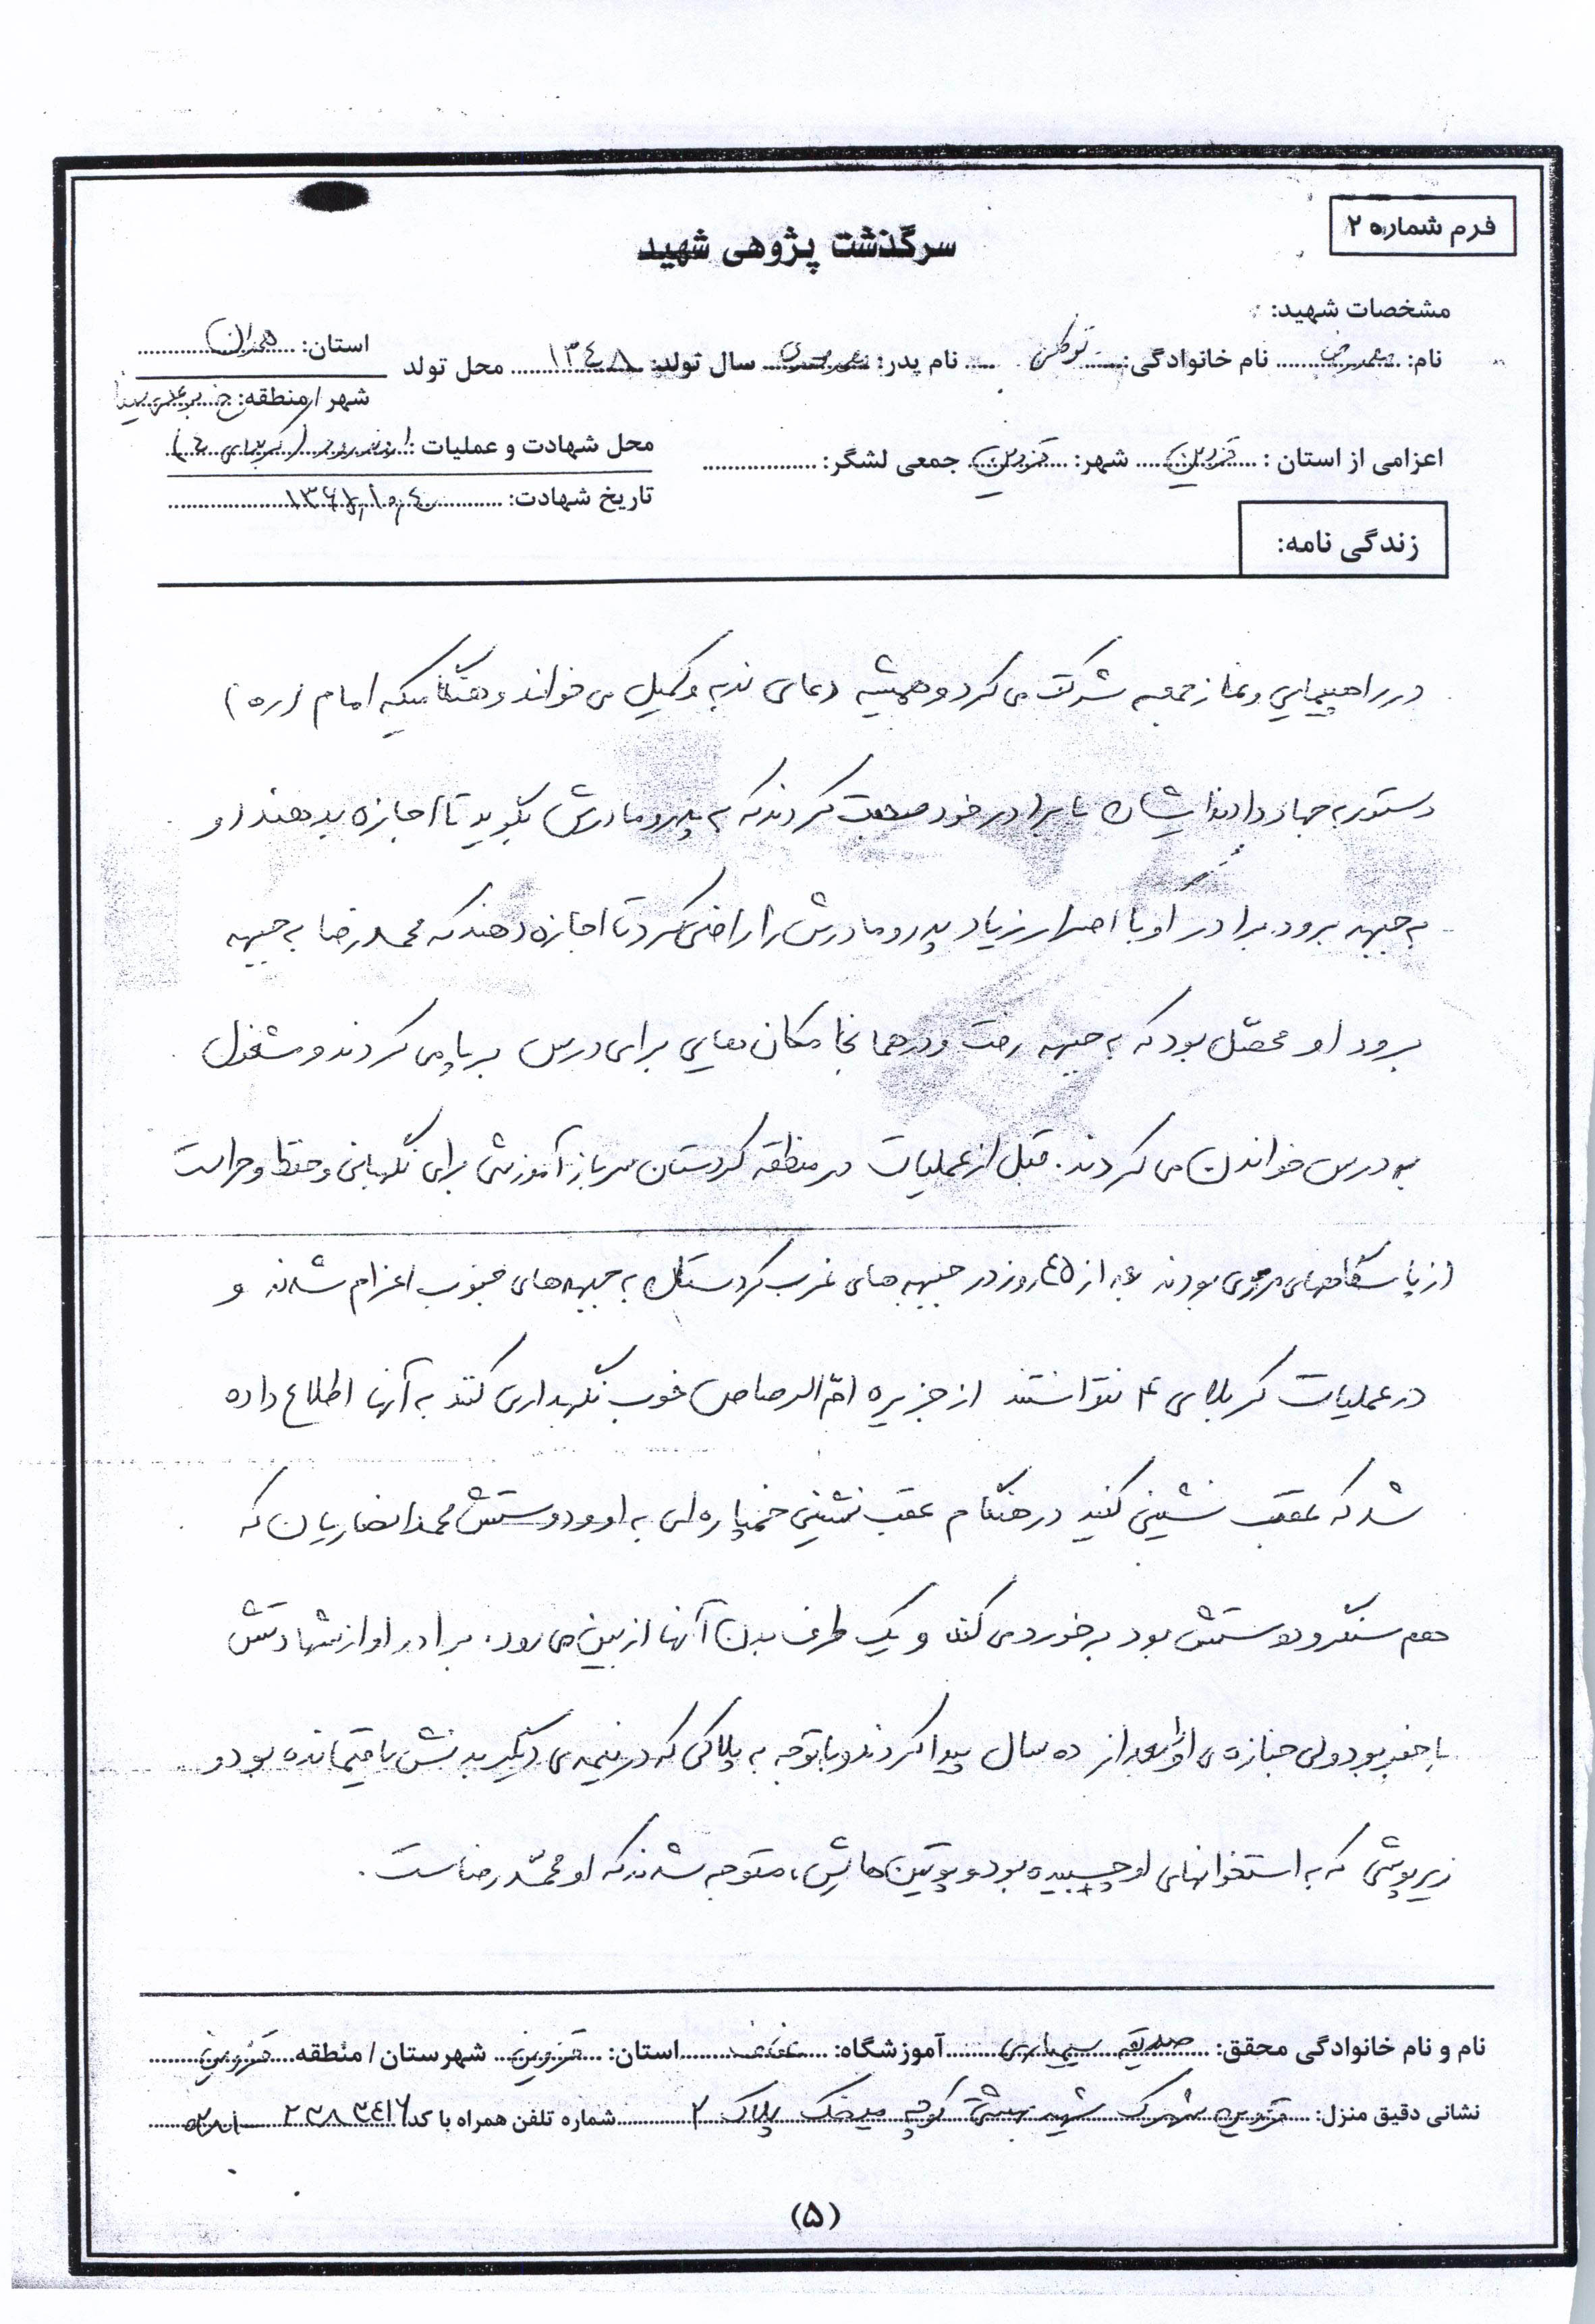 فرم شماره ۲
سرگذشت پژوهی شهید
مشخصات شهید:
نام: محمدرضا نام خانوادگی: توکلی نام پدر: سال تولد: ۱۳۴۸ محل تولد
استان: همدان
شهر / منطقه:
اعزامی از استان: قزوین شهر: قزوین جمعی لشگر:
محل شهادت و عملیات: اروندرود (کربلای ۴)
تاریخ شهادت:
زندگی نامه:
در راهپیمایی و نماز جمعه شرکت می کرد و همیشه دعای ندبه و کمیل می خواند و هنگامیکه امام (ره)
دستور به جهاد دادند ایشان با برادر خود صحبت کردند که به پدر و مادرش بگوید تا اجازه بدهند او
به جبهه برود. برادر او با اصرار زیاد پدر و مادرش را راضی کرد تا اجازه دهند که محمدرضا به جبهه
برود او محصّل بود که به جبهه رفت و در همانجا مکان هایی برای درس برپا می کردند و مشغول
به درس خواندن می کردند. قبل از عملیات در منطقه کردستان سرباز آموزشی برای نگهبانی و حفظ و حراست
از پاسگاههای مرزی بودند بعد از ۴۵ روز در جبهه های غرب کردستان به جبهه های جنوب اعزام شدند و
در عملیات کربلای ۴ نتوانستند از جزیره امّ الرصاص خوب نگهداری کنند به آنها اطلاع داده
شد که عقب نشینی کنید در هنگام عقب نشینی خمپاره ای به او و دوستش محمد انصاریان که
هم سنگر و دوستش بود برخورد می کند و یک طرف بدن آنها از بین می رود. برادر او از شهادتش
با خبر بود ولی جنازه ی او را بعد از ده سال پیدا کردند و با توجه به پلاکی که در نیمه ی دیگر بدنش باقیمانده بود و
زیرپوشی که به استخوانهای او چسبیده بود و پوتین هایش، متوجه شدند که او محمّدرضاست.
نام و نام خانوادگی محقق: صدیقه آموزشگاه: استان: قزوین شهرستان / منطقه قزوین
نشانی دقیق منزل: قزوین شهرک شهید بهشتی کوچه میخک پلاک ۲ شماره تلفن همراه با کد ۲۳۸۳۴۱۶ ۰۲۸۱
(۵)